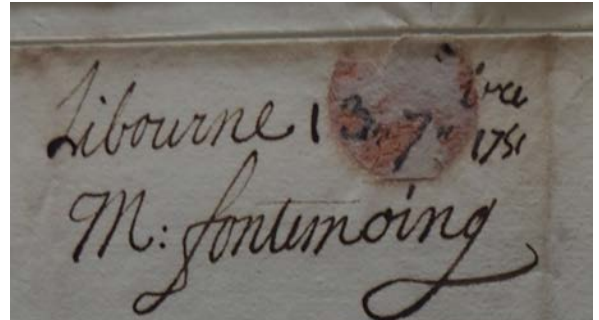 Libourne 13 7bre 1751
M: fontemoing